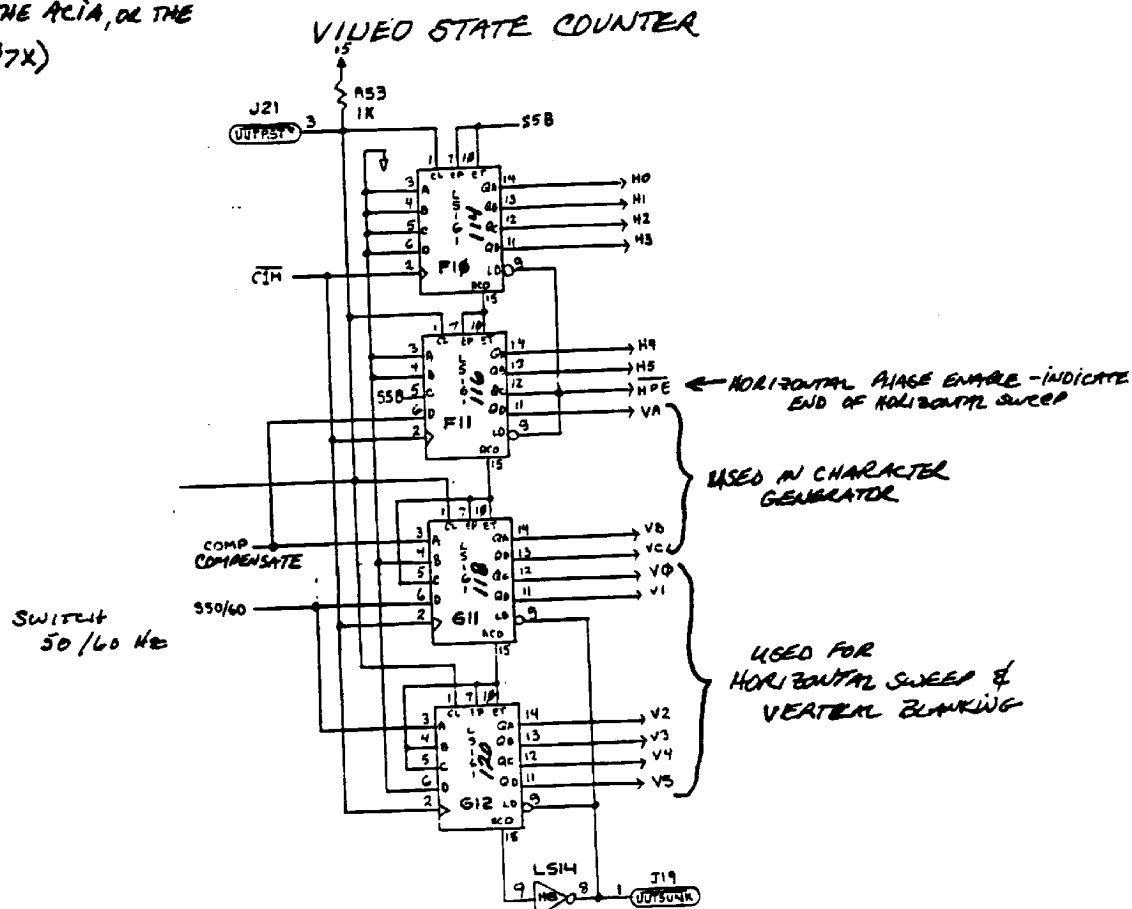 THE ACIA, OR THE
7X)
VIDEO STATE COUNTER
J21
3
R53
1K
S5B
1 7 10
CL EP ET
3 A QA 14 H0
4 B QB 13 H1
5 C QC 12 H2
6 D QD 11 H3
2 LD 9
LS161
114
F10
RCO
15
C1M
1 7 10
CL EP ET
3 A QA 14 H4
4 B QB 13 H5
S5B 5 C QC 12 HPE
6 D QD 11 VA
2 LD 9
LS161
116
F11
RCO
15
← HORIZONTAL PHASE ENABLE - INDICATE
END OF HORIZONTAL SWEEP
USED IN CHARACTER
GENERATOR
1 7 10
CL EP ET
COMP 3 A QA 14 VB
COMPENSATE
4 B QB 13 VC
5 C QC 12 V0
S50/60 6 D QD 11 V1
2 LD 9
LS161
118
G11
RCO
15
SWITCH
50/60 Hz
USED FOR
HORIZONTAL SWEEP &
VERTICAL BLANKING
1 7 10
CL EP ET
3 A QA 14 V2
4 B QB 13 V3
5 C QC 12 V4
6 D QD 11 V5
2 LD 9
LS161
120
G12
RCO
15
LS14
9 H8 8 1
J19